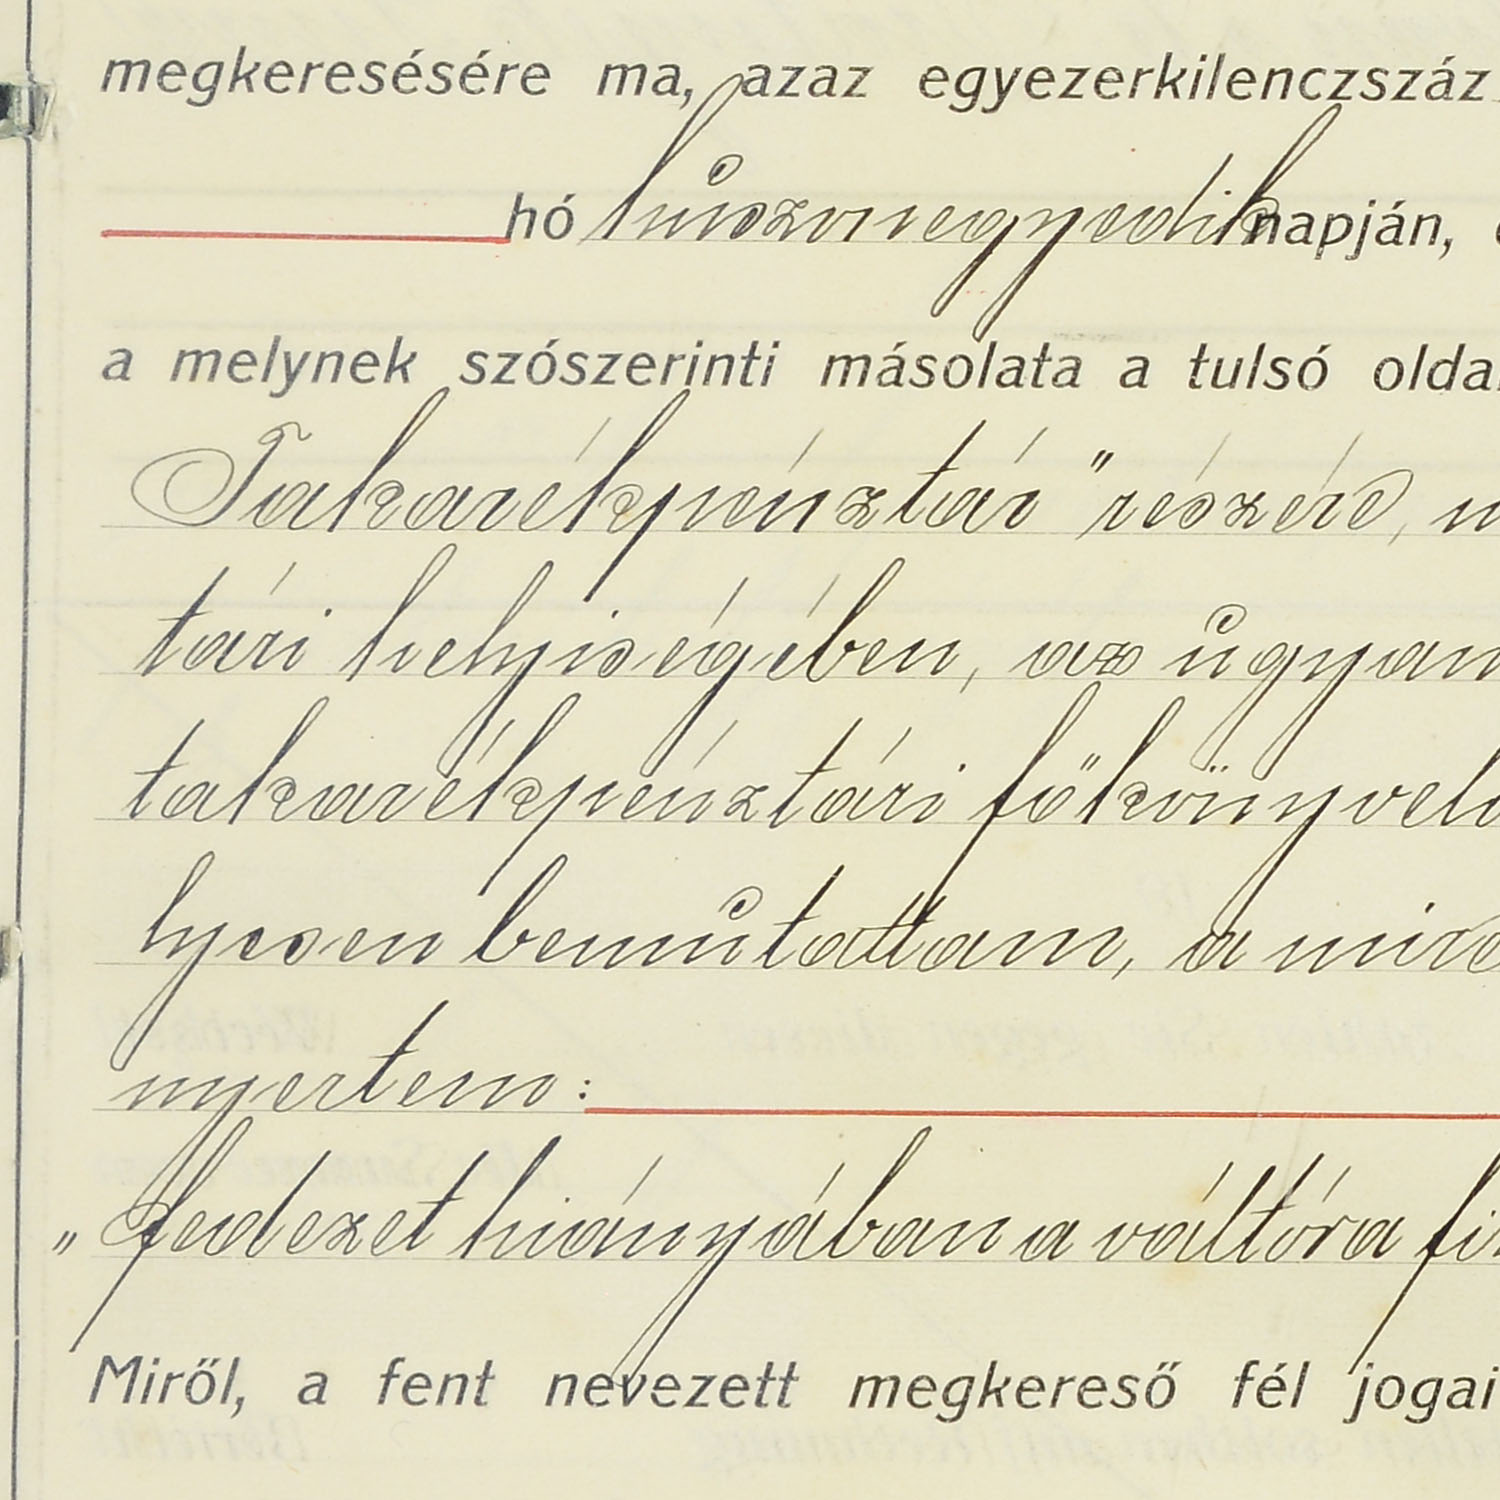 megkeresésére ma, azaz egyezerkilenczszáz
hó húszonegyedik napján,
a melynek szószerinti másolata a tulsó
Takarékpénztár" részére,
tári helyiségében, az
takarékpénztári
lyesen bemútattam, a
nyertem:
„Fedezet hiányában a váltóra
Miről, a fent nevezett megkereső fél jogai